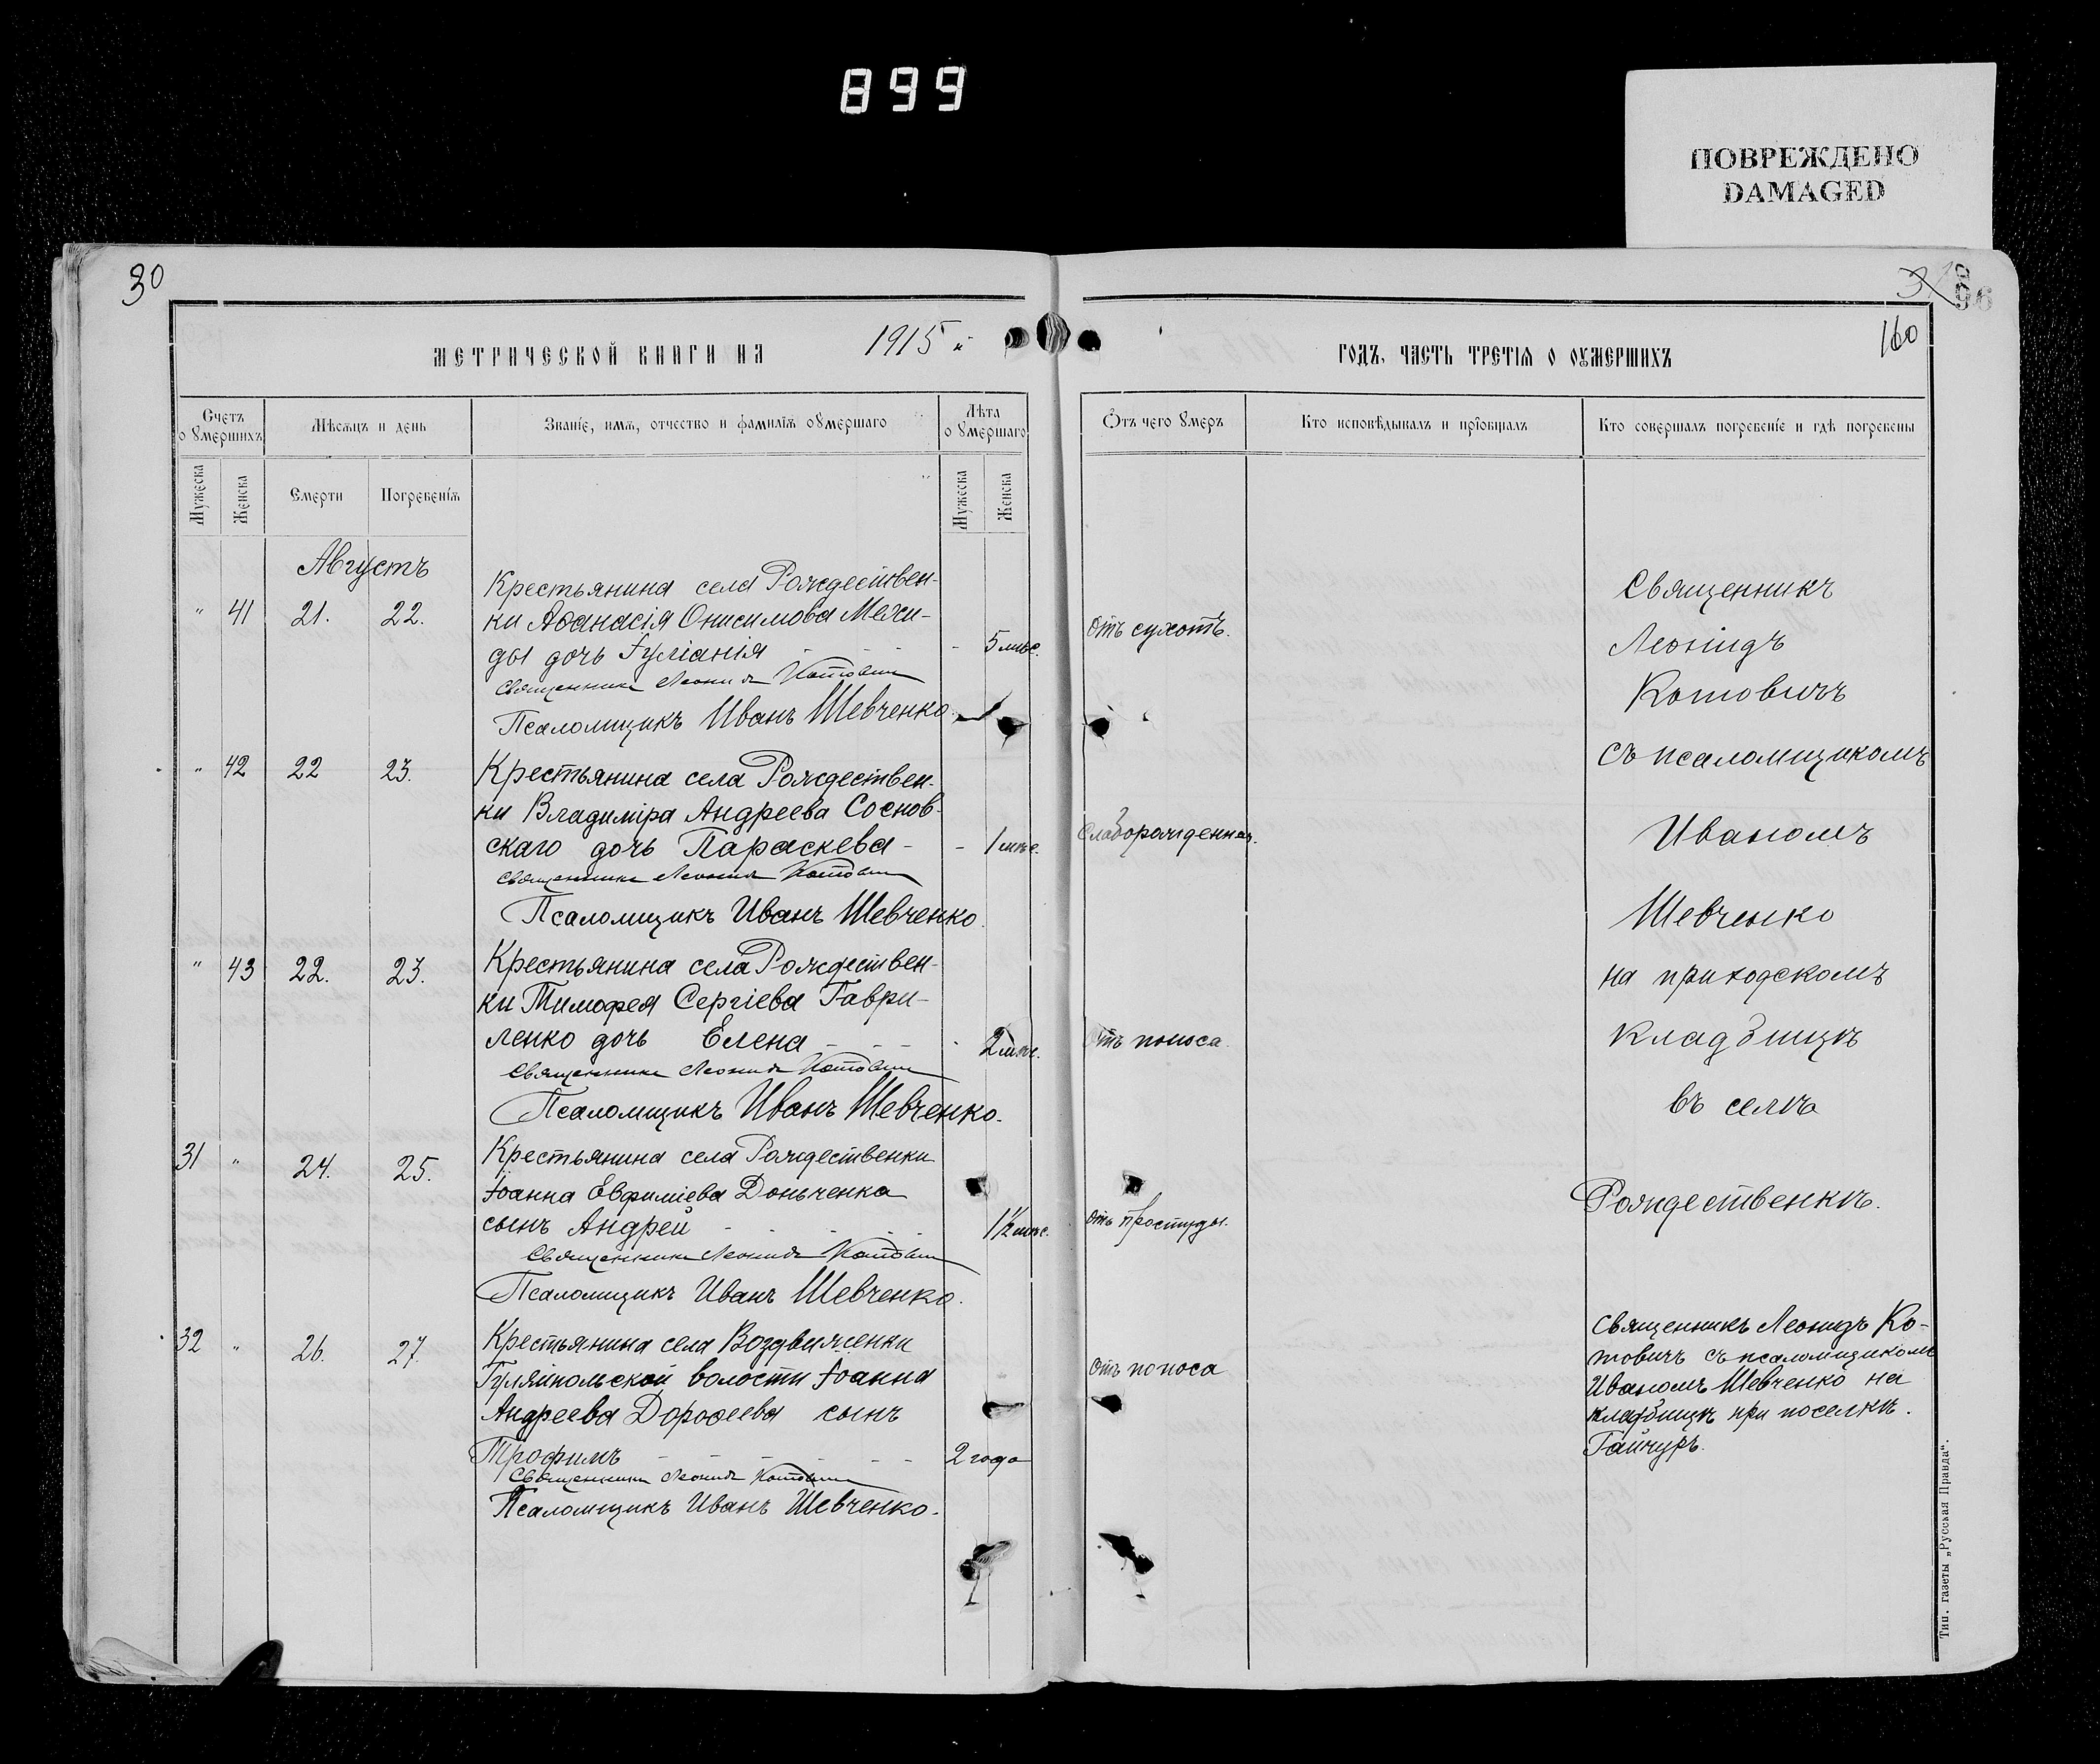 899
ПОВРЕЖДЕНО
DAMAGED
30
160
МЕТРИЧЕСКОЙ КНИГИ НА 1915 й
ГОДЪ, ЧАСТЬ ТРЕТІЯ О ОУМЕРШИХЪ
Счетъ о умершихъ
Мѣсяцъ и день
Званіе, имя, отчество и фамилія оумершаго
Лѣта оумершаго
Мужеска
Женска
Смерти
Погребенія
Мужеска
Женска
Отъ чего умеръ
Кто исповѣдывалъ и пріобщалъ
Кто совершалъ погребеніе и гдѣ погребены
Августъ
" 41 21. 22.
Крестьянина села Рождествен-
ки Аѳанасія Онисимова Межи-
ды дочь Іуліанія - - -
- 5 мѣс.
Отъ сухотъ.
Священникъ Леонидъ Котовичъ
Псаломщикъ Иванъ Шевченко.
" 42 22 23.
Крестьянина села Рождествен-
ки Владиміра Андреева Соснов-
скаго дочь Параскева -
- 1 мѣс.
Слаборожденная.
Священникъ Леонидъ Котовичъ
Псаломщикъ Иванъ Шевченко.
" 43 22. 23.
Крестьянина села Рождествен-
ки Тимофея Сергіева Гаври-
ленко дочь Елена - - -
- 2 мѣс.
Отъ поноса
Священникъ Леонидъ Котовичъ
Псаломщикъ Иванъ Шевченко.
31 " 24. 25.
Крестьянина села Рождественки
Іоанна Евфиміева Доньченка
сынъ Андрей - - - -
1 1/2 мѣс.
отъ простуды.
Священникъ Леонидъ Котовичъ
Псаломщикъ Иванъ Шевченко.
32 " 26. 27.
Крестьянина села Воздвиженки
Гуляйпольской волости Іоанна
Андреева Дорофеева сынъ
Трофимъ - - - - -
2 года
Отъ поноса
Священникъ Леонидъ Котовичъ
Псаломщикъ Иванъ Шевченко.
Священникъ
Леонидъ
Котовичъ
съ псаломщикомъ
Иваномъ
Шевченко
на приходскомъ
кладбищѣ
въ селѣ
Рождественкѣ.
Священникъ Леонидъ Ко-
товичъ съ псаломщикомъ
Иваномъ Шевченко на
кладбищѣ при поселкѣ.
Гайчуръ.
Тип. газеты „Русская Правда“.